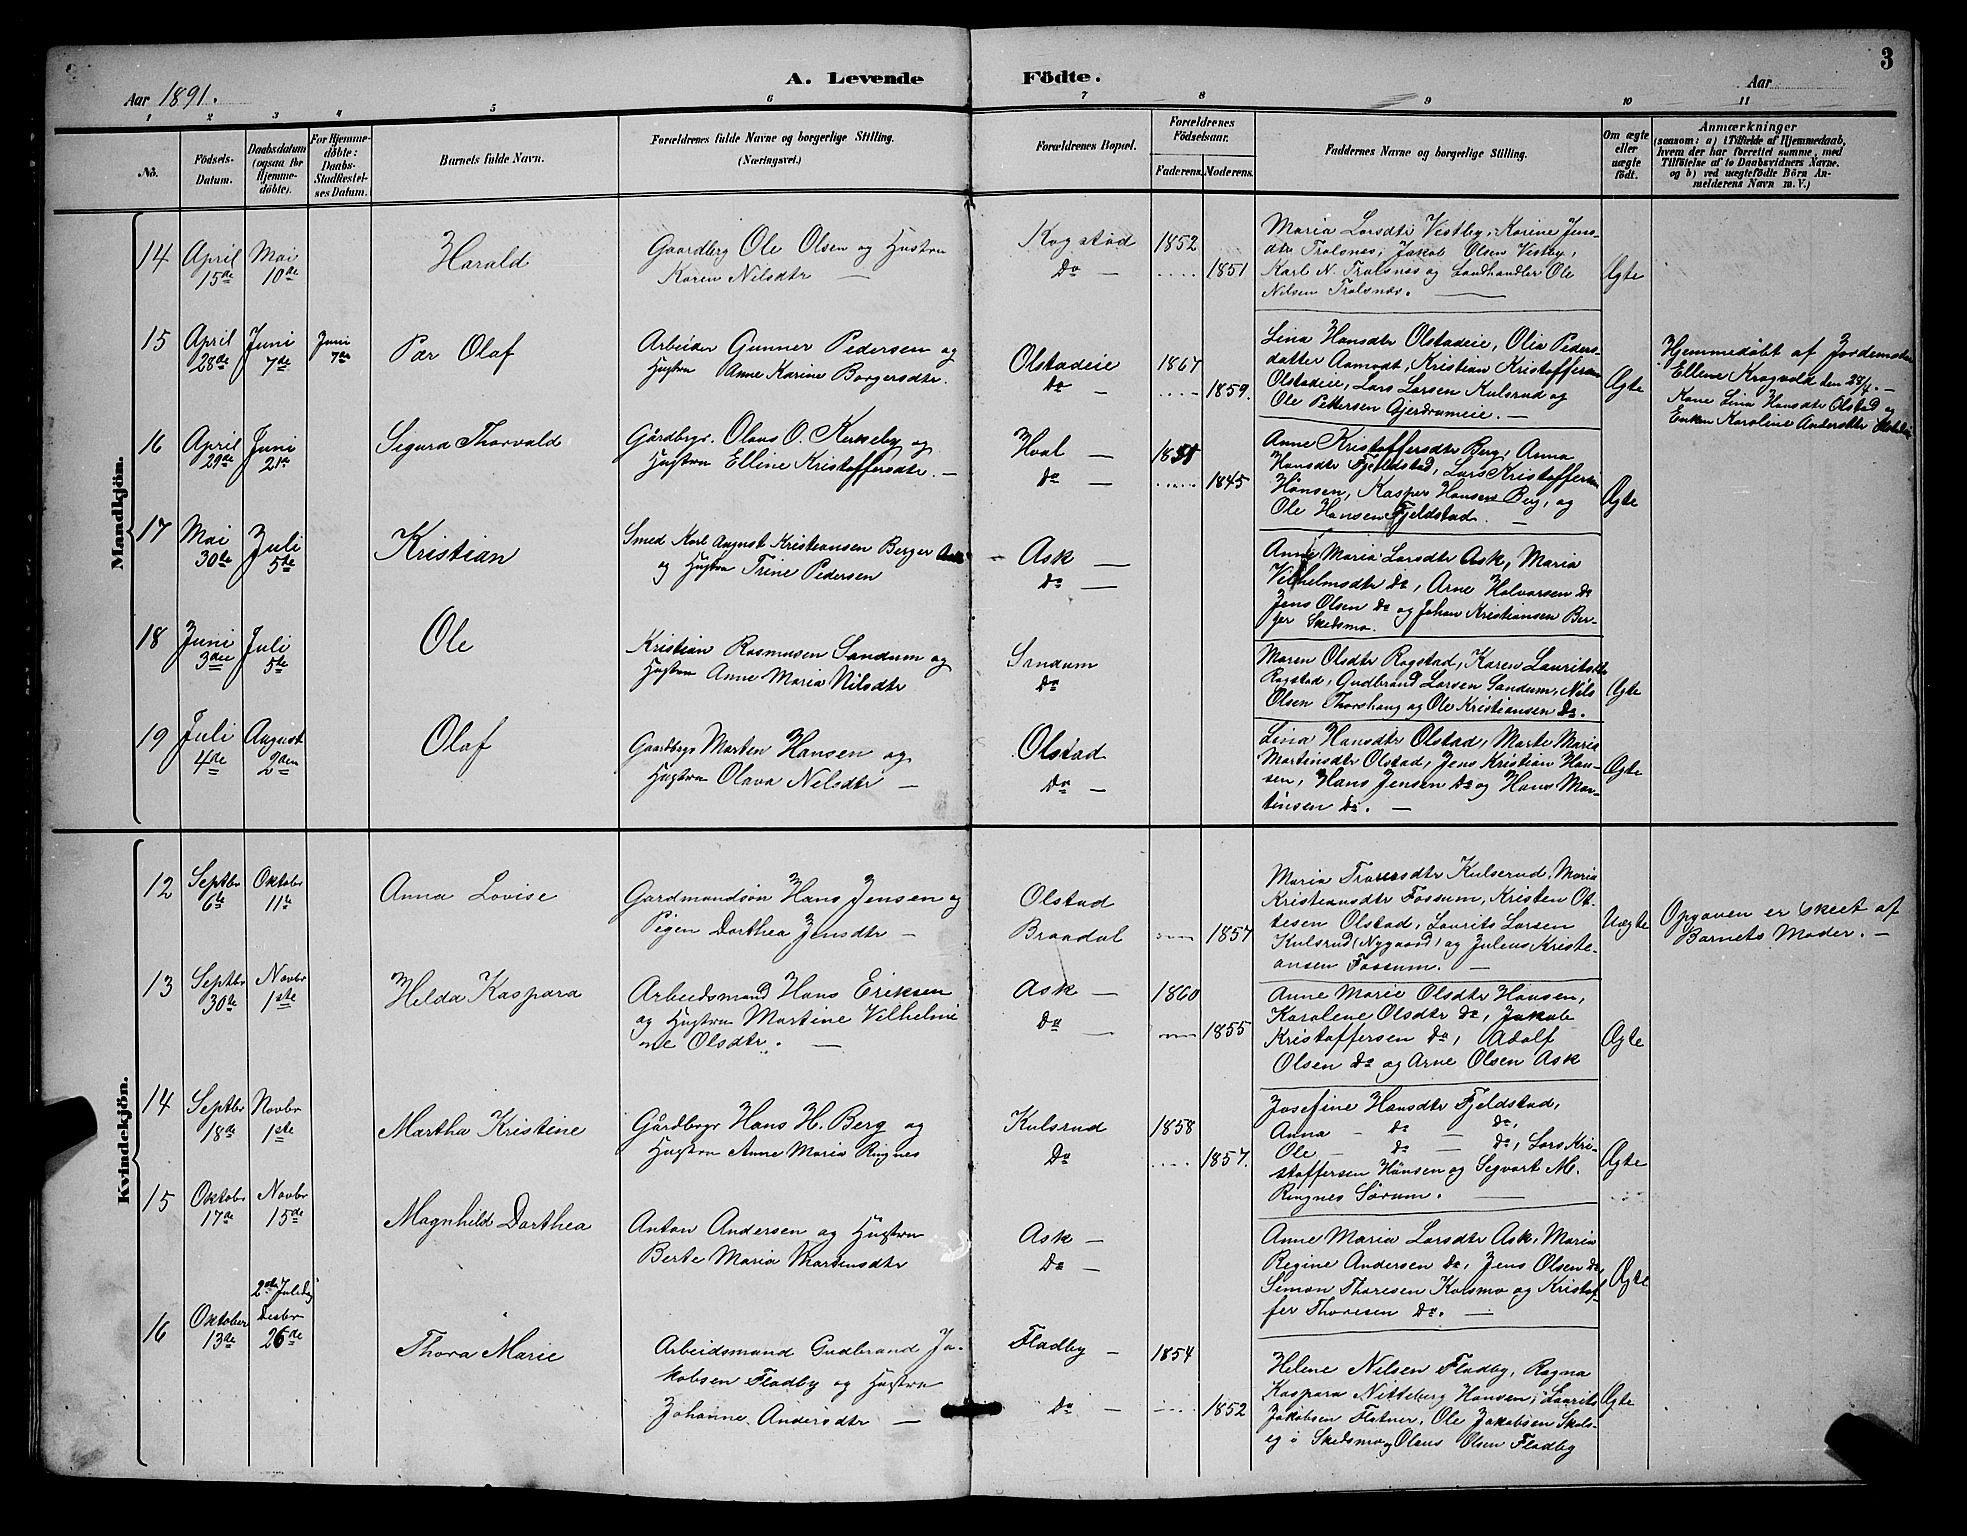 3
A. Levende Födte.
Aar 1891.
Aar
1 2 3 4 5 6 7 8 9 10 11
No.
Födsels-
Datum.
Daabsdatum
(ogsaa for
Hjemme-
döbte).
For Hjemme-
döbte:
Daabs-
Stadfæstel-
ses Datum.
Barnets fulde Navn.
Forældrenes fulde Navne og borgerlige Stilling.
(Næringsvei.)
Forældrenes Bopæl.
Forældrenes
Födselsaar.
Faderens. Moderens.
Faddernes Navne og borgerlige Stilling.
Om ægte
eller
uægte
födt.
Anmærkninger
(saasom: a) i Tilfælde af Hjemmedaab,
hvem der har forrettet samme, med
Tilföielse af to Daabsvidners Navne.
og b) ved uægtefödte Börn An-
melderens Navn m. V.)
Mandkjön.
14
April
15de
Mai
10de
Harald
Gaardbrg Ole Olsen og Hustru
Karen Nilsdtr —
Kogstad
Do —
1852
1851
Maria Larsdtr Vestby, Karine Jens-
dtr Tralsnes, Jakob Olsen Vestby,
Karl N. Tralsnes og Landhandler Ole
Nilsen Tralsnæs. —
Ægte
15
April
28de
Juni
7de
Juni
7de
Per Olaf
Arbeider Gunner Pedersen og
Hustru Anne Karine Borgersdtr.
Olstadeie
Do —
1867
1859.
Lina Hansdtr Olstadeie, Olia Peders-
datter Aamodt, Kristian Kristoffersen
Olstadeie, Lars Larsen Kulsrud og
Ole Pettersen Gjerdrumeie. —
Ægte
Hjemmedöbt af Jordemoder
Ellene Kragvold den 28/4. —
Kone Lina Hansdtr Olstad og
Enken Karoline Andersdtr
16
April
29de
Juni
21de
Sigurd Thorvald
Gårdbgr. Olaus O. Kirkeby og
Hustru Elline Kristoffersdtr. —
Hval —
Do —
1845
Anne Kristoffersdtr Berg, Anna
Hansdtr Fjeldstad, Lars Kristoffersen
Hönsen, Kasper Hansen Berg, og
Ole Hansen Fjeldstad. —
Ægte
17
Mai
30te
Juli
5te
Kristian
Smed Karl August Kristiansen Berger Ask
og Hustru Trine Pedersen
Ask —
Do —
Anne Maria Larsdtr Ask, Maria
Vilhelmsdtr Do, Arne Halvorsen Do
Jens Olsen Do og Johan Kristiansen Ber-
ger Skedsmo.
18
Juni
3die
Juli
5te
Ole
Kristian Rasmusen Sandum og
Hustru Anne Maria Nilsdtr
Sandum
Do
Maren Olsdtr Rogstad, Karen Lauritsdtr
Rogstad, Gudbrand Larsen Sandum, Nils
Olsen Thorshaug og Ole Kristiansen Do.
Ægte
19
Juli
4de
August
2den
Olaf
Gaardbrgs Marten Hansen og
Hustru Olava Nilsdtr —
Olstad
Do —
Lina Hansdtr Olstad, Marte Maria
Martinsdtr Olstad, Jens Kristian Han-
sen, Hans Jensen Do og Hans Mar-
tinsen Do. —
Ægte
Kvindekjön.
12
Septbr
6te
Oktobr
11te
Anna Lovise
Gardmandsön Hans Jensen og
Pigen Dorthea Jensdtr —
Olstad
Braadal
1857
Maria Kulsrud, Maria
Kristiansdtr Fossum, Kristen Ot-
tesen Olstad, Laurits Larsen
Kulsrud (Nygaard) og Julius Kristi-
ansen Fossum. —
Uægte
Opgaven er skeet af
Barnets Moder. —
13
Septbr
30te
Novbr
1ste
Hilda Kaspara
Arbeidsmand Hans Eriksen
og Hustru Martine Vilhelmi
ne Olsdtr. —
Ask —
Do —
1860
1855
Anne Marie Olsdtr Hansen,
Karolene Olsdtr Do, Jakob
Kristoffersen Do, Adolf
Olsen Do og Arne Olsen Ask
Ægte
14
Septbr
18de
Novbr
1ste
Martha Kristine
Gårdbrgr Hans H. Berg og
Hustru Anne Maria Ringnes
Kulsrud
Do
1858
1857.
Josefine Hansdtr Fjeldstad,
Anna — Do — Do,
Ole — Do — Do, Lars Kri-
stoffersen Hönsen og Segvart M.
Ringnes Sörum. —
Ægte
15
Oktobr
17de
Novbr
15de
Magnhild Dorthea
Anton Andersen og Hustru
Berte Maria Martinsdtr
Ask —
Do —
Anne Maria Larsdtr Ask, Maria
Regine Andersen Do, Jens Olsen Do,
Simon Thoresen Kolsmo og Kristof-
fer Thoresen Do. —
Ægte
16
Oktober
13de
2den Juledag
Desbr
26de
Thora Marie
Arbeidsmand Gudbrand Ja-
kobsen Fladby og Hustru
Johanne Andersdtr —
Fladby —
Do —
1854
1852
Helene Nilsen Fladby, Ragna
Kaspara Nitteberg Hansen, Laurits
Jakobsen Flatner, Ole Jakobsen Skols-
eg i Skedsmo og Olaus Olsen Fladby
Ægte